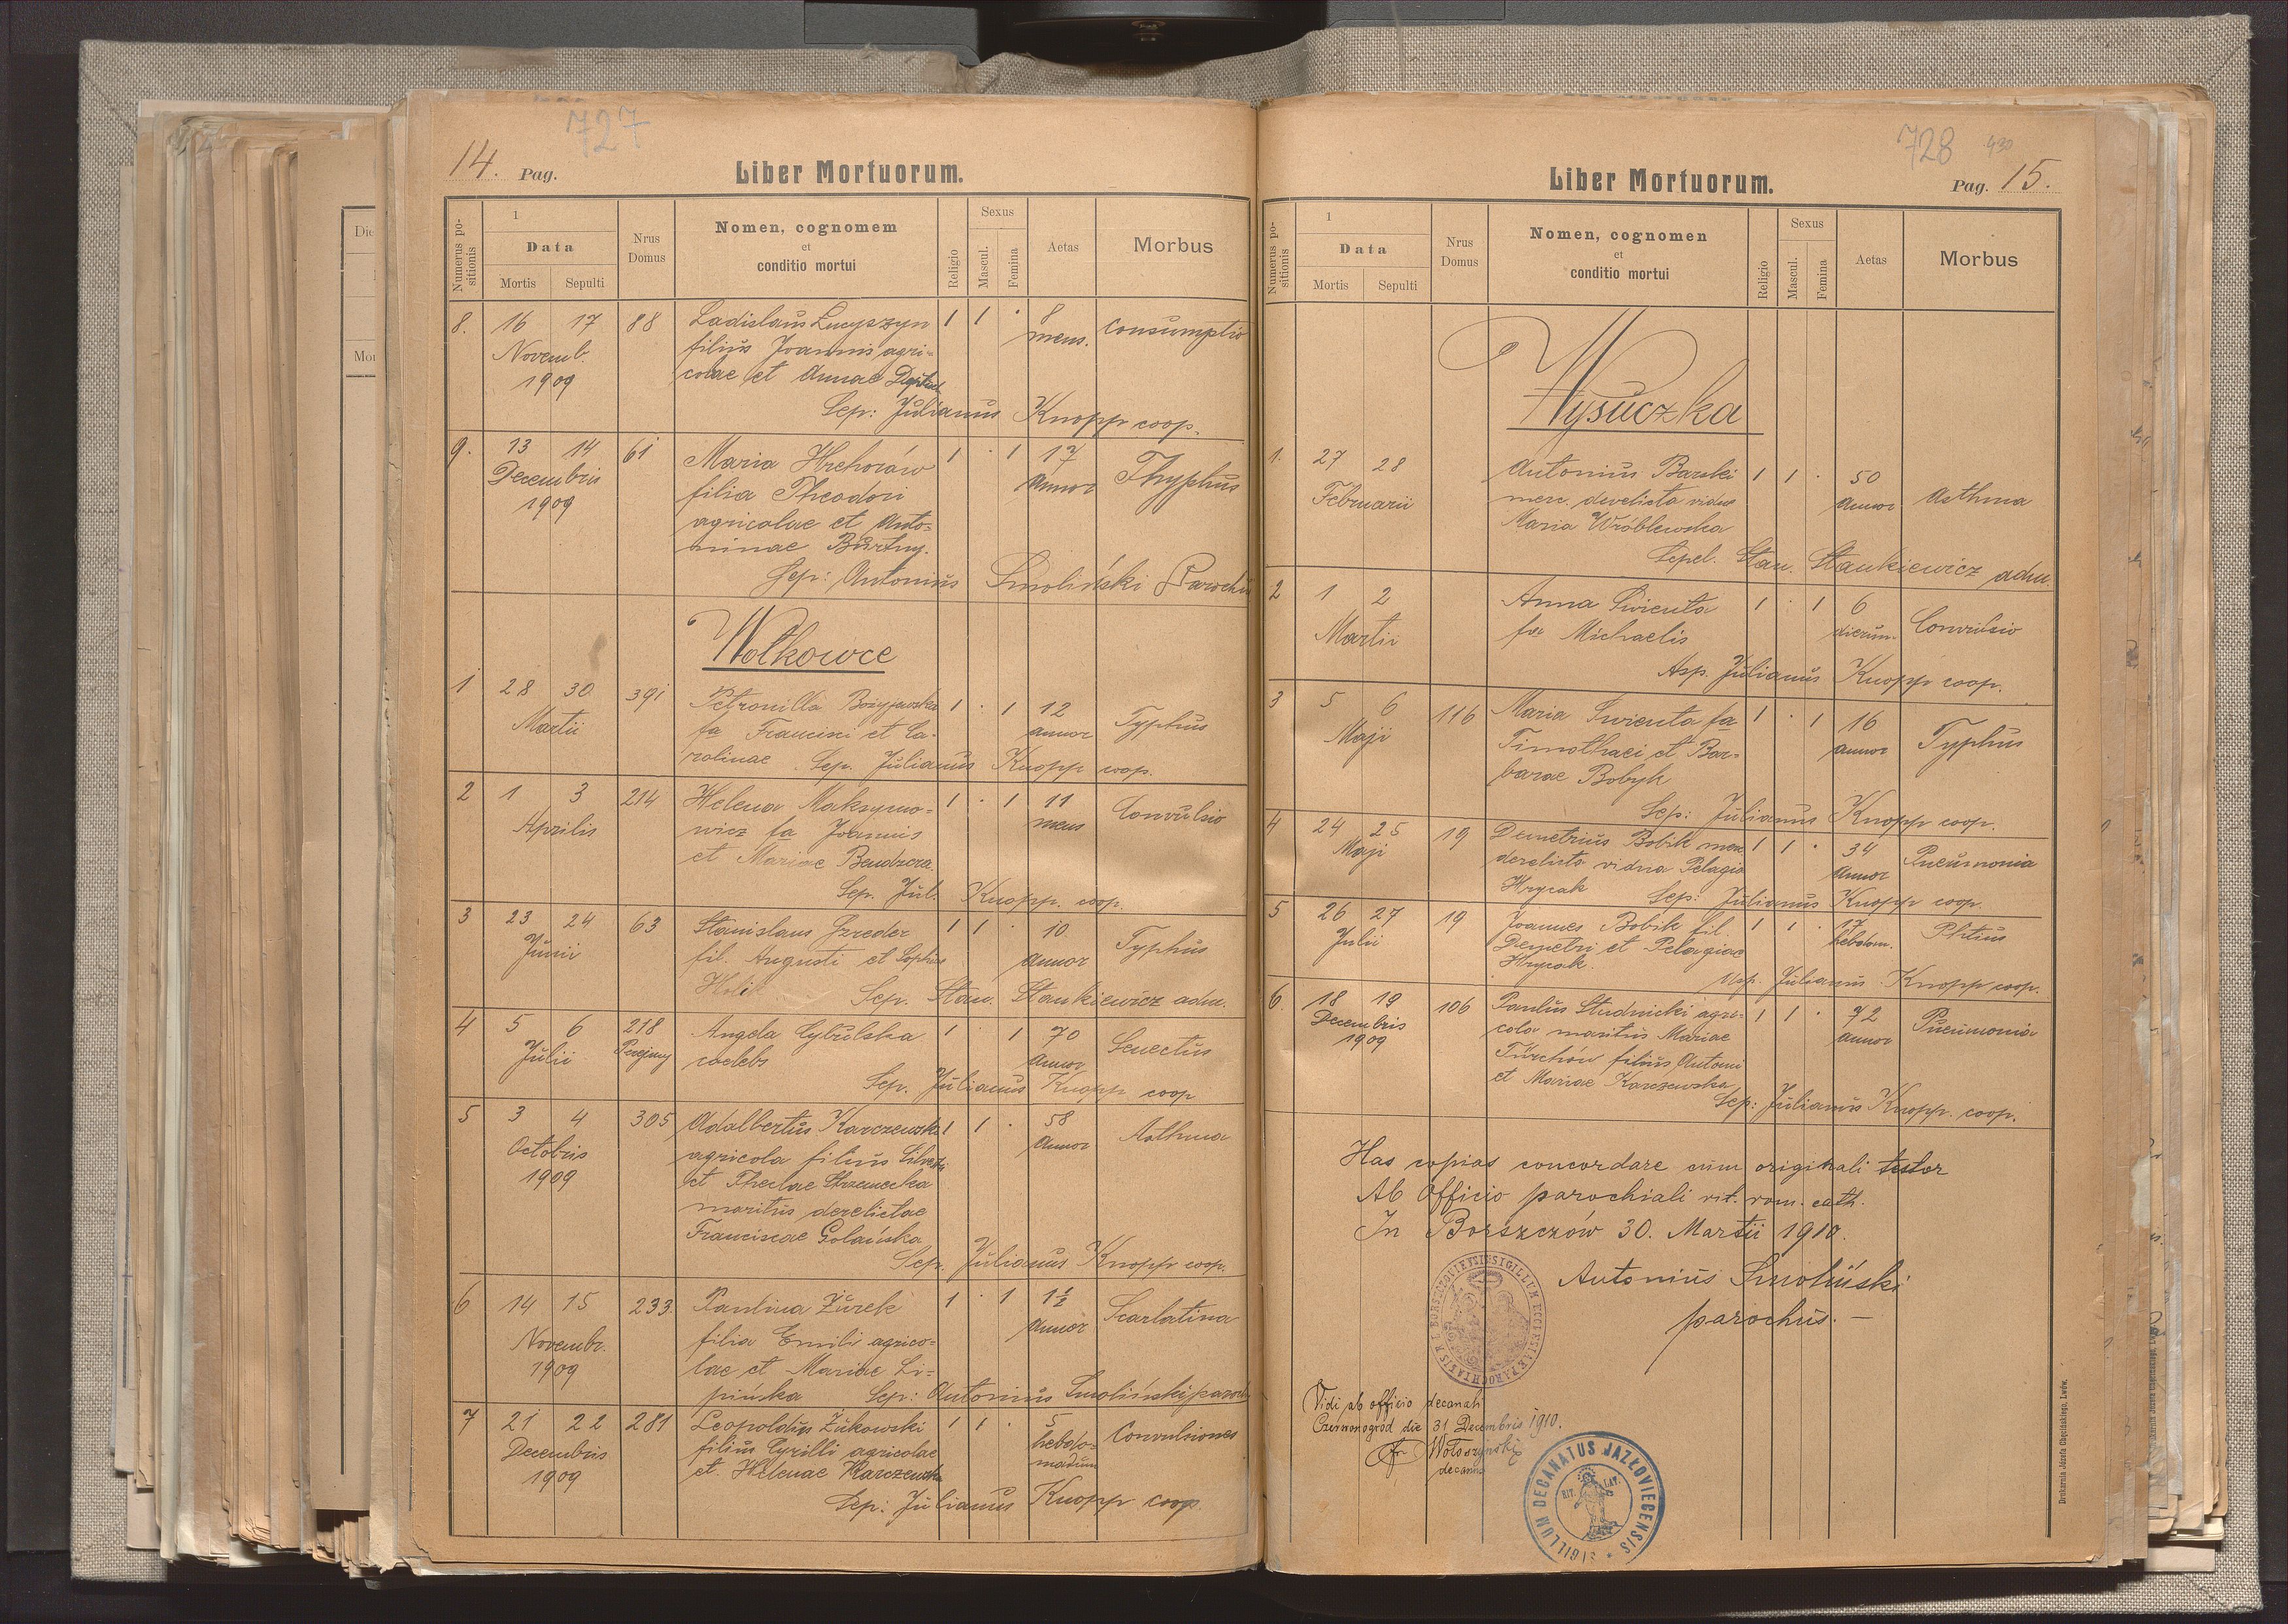 727
14. Pag.
Liber Mortuorum.
Numerus positionis
1
Data
Mortis Sepulti
Nrus Domus
Nomen, cognomem
et
conditio mortui
Religio
Sexus
Mascul.
Femina
Aetas
Morbus
8. 16 17 88 Ladislaus Łucyszyn 1 1 · 8 consumptio
Novemb. filius Joannis agri= mens.
1909 colae et Annae
Sep: Julianus Knopp coop.
9. 13 14 61 Maria Hrehorów 1 · 1 17 Thyphus
Decembris filia Theodori annor
1909 agricolae et Anto=
ninae Burtny.
Sep: Antonius Smoliński Parochus
Wołkowce
1 28 30 391 Petronilla Bożyjewska 1 · 1 12 Typhus
Martii fa Francisci et Ca- annor
rolinae Sep. Julianus Knopp coop.
2 1 3 214 Helena Maksymo= 1 · 1 11 Convulsio
Aprilis wicz fa Joannis mens
et Mariae Bendzera
Sep. Jul. Knopp. coop.
3 23 24 63 Stanislaus Gzreder 1 1 · 10 Typhus
Junii fil. Augusti et Sophiae annor
Holik Sep. Stan. Stankiewicz adm.
4 5 6 218 Angela Cybulska 1 · 1 70 Senectus
Julii coelebs annor
Sep. Julianus Knopp coop
5 3 4 305 Adalbertus Karczewski 1 1 · 58 Asthma
Octobris agricola filius Silvestri annor
1909 et Theclae Strzemecka
maritus derelictae
Franciscae Golańska
Sep. Julianus Knopp coop.
6 14 15 233. Paulina Żurek 1 · 1 1½ Scarlatina
Novembr. filia Emilii agrico= annor
1909 lae et Mariae Li=
pińska Sep: Antonius Smoliński paroch
7 21 22 281 Leopoldus Żukowski 1 1 · 5 Convulsiones
Decembris filius Cyrilli agricolae hebdo=
1909 et Helenae Karczewska madum
Sep: Julianus Knopp coop.
728 430
Liber Mortuorum.
Pag. 15.
Numerus positionis
1
Data
Mortis Sepulti
Nrus Domus
Nomen, cognomen
et
conditio mortui
Religio
Sexus
Mascul.
Femina
Aetas
Morbus
Wysuczka
1. 27 28 Antonius Barski 1 1 · 50 Asthma
Februarii merc. derelicta vidua annor
Maria Wróblewska
Sepel. Stan. Stankiewicz adm.
2 1 2 Anna Swienta 1 · 1 6 Convulsio
Martii fa Michaelis dierum.
Asp. Julianus Knopp coop.
3 5 6 116 Maria Swienta fa 1 · 1 16 Typhus
Maji Timothaei et Bar= annor
barae Bobyk
Sep: Julianus Knopp coop.
4 24 25 19 Demetrius Bobik merc 1 1 · 34 Pneumonia
Maji derelicta vidua Pelagia annor
Hrycak Sep: Julianus Knopp coop.
5 26 27 19 Joannes Bobik fil. 1 1 · 17 Phtius
Julii Demetri et Pelagiae hebdom.
Hrycak.
Asp. Julianus Knopp coop.
6. 18 19 106 Paulus Studnicki agri= 1 1 · 72 Pneumonia
Decembris cola maritus Mariae annor
1909 Turchów filius Antoni
et Mariae Karczewska
Sep: Julianus Knopp. coop.
Has copias concordare cum originali testor
Ab Officio parochiali rit. rom. cath.
In Borszczów 30. Martii 1910.
Antonius Smoliński
parochus. —
Vidi ab officio decanali
Czerwonogród die 31 Decembris 1910.
Wołoszyński
decanus
SIGILLUM DECANATUS JAZŁOVIECENSIS
RIT. LAT.
Drukarnia Józefa Chęcińskiego, Lwów.